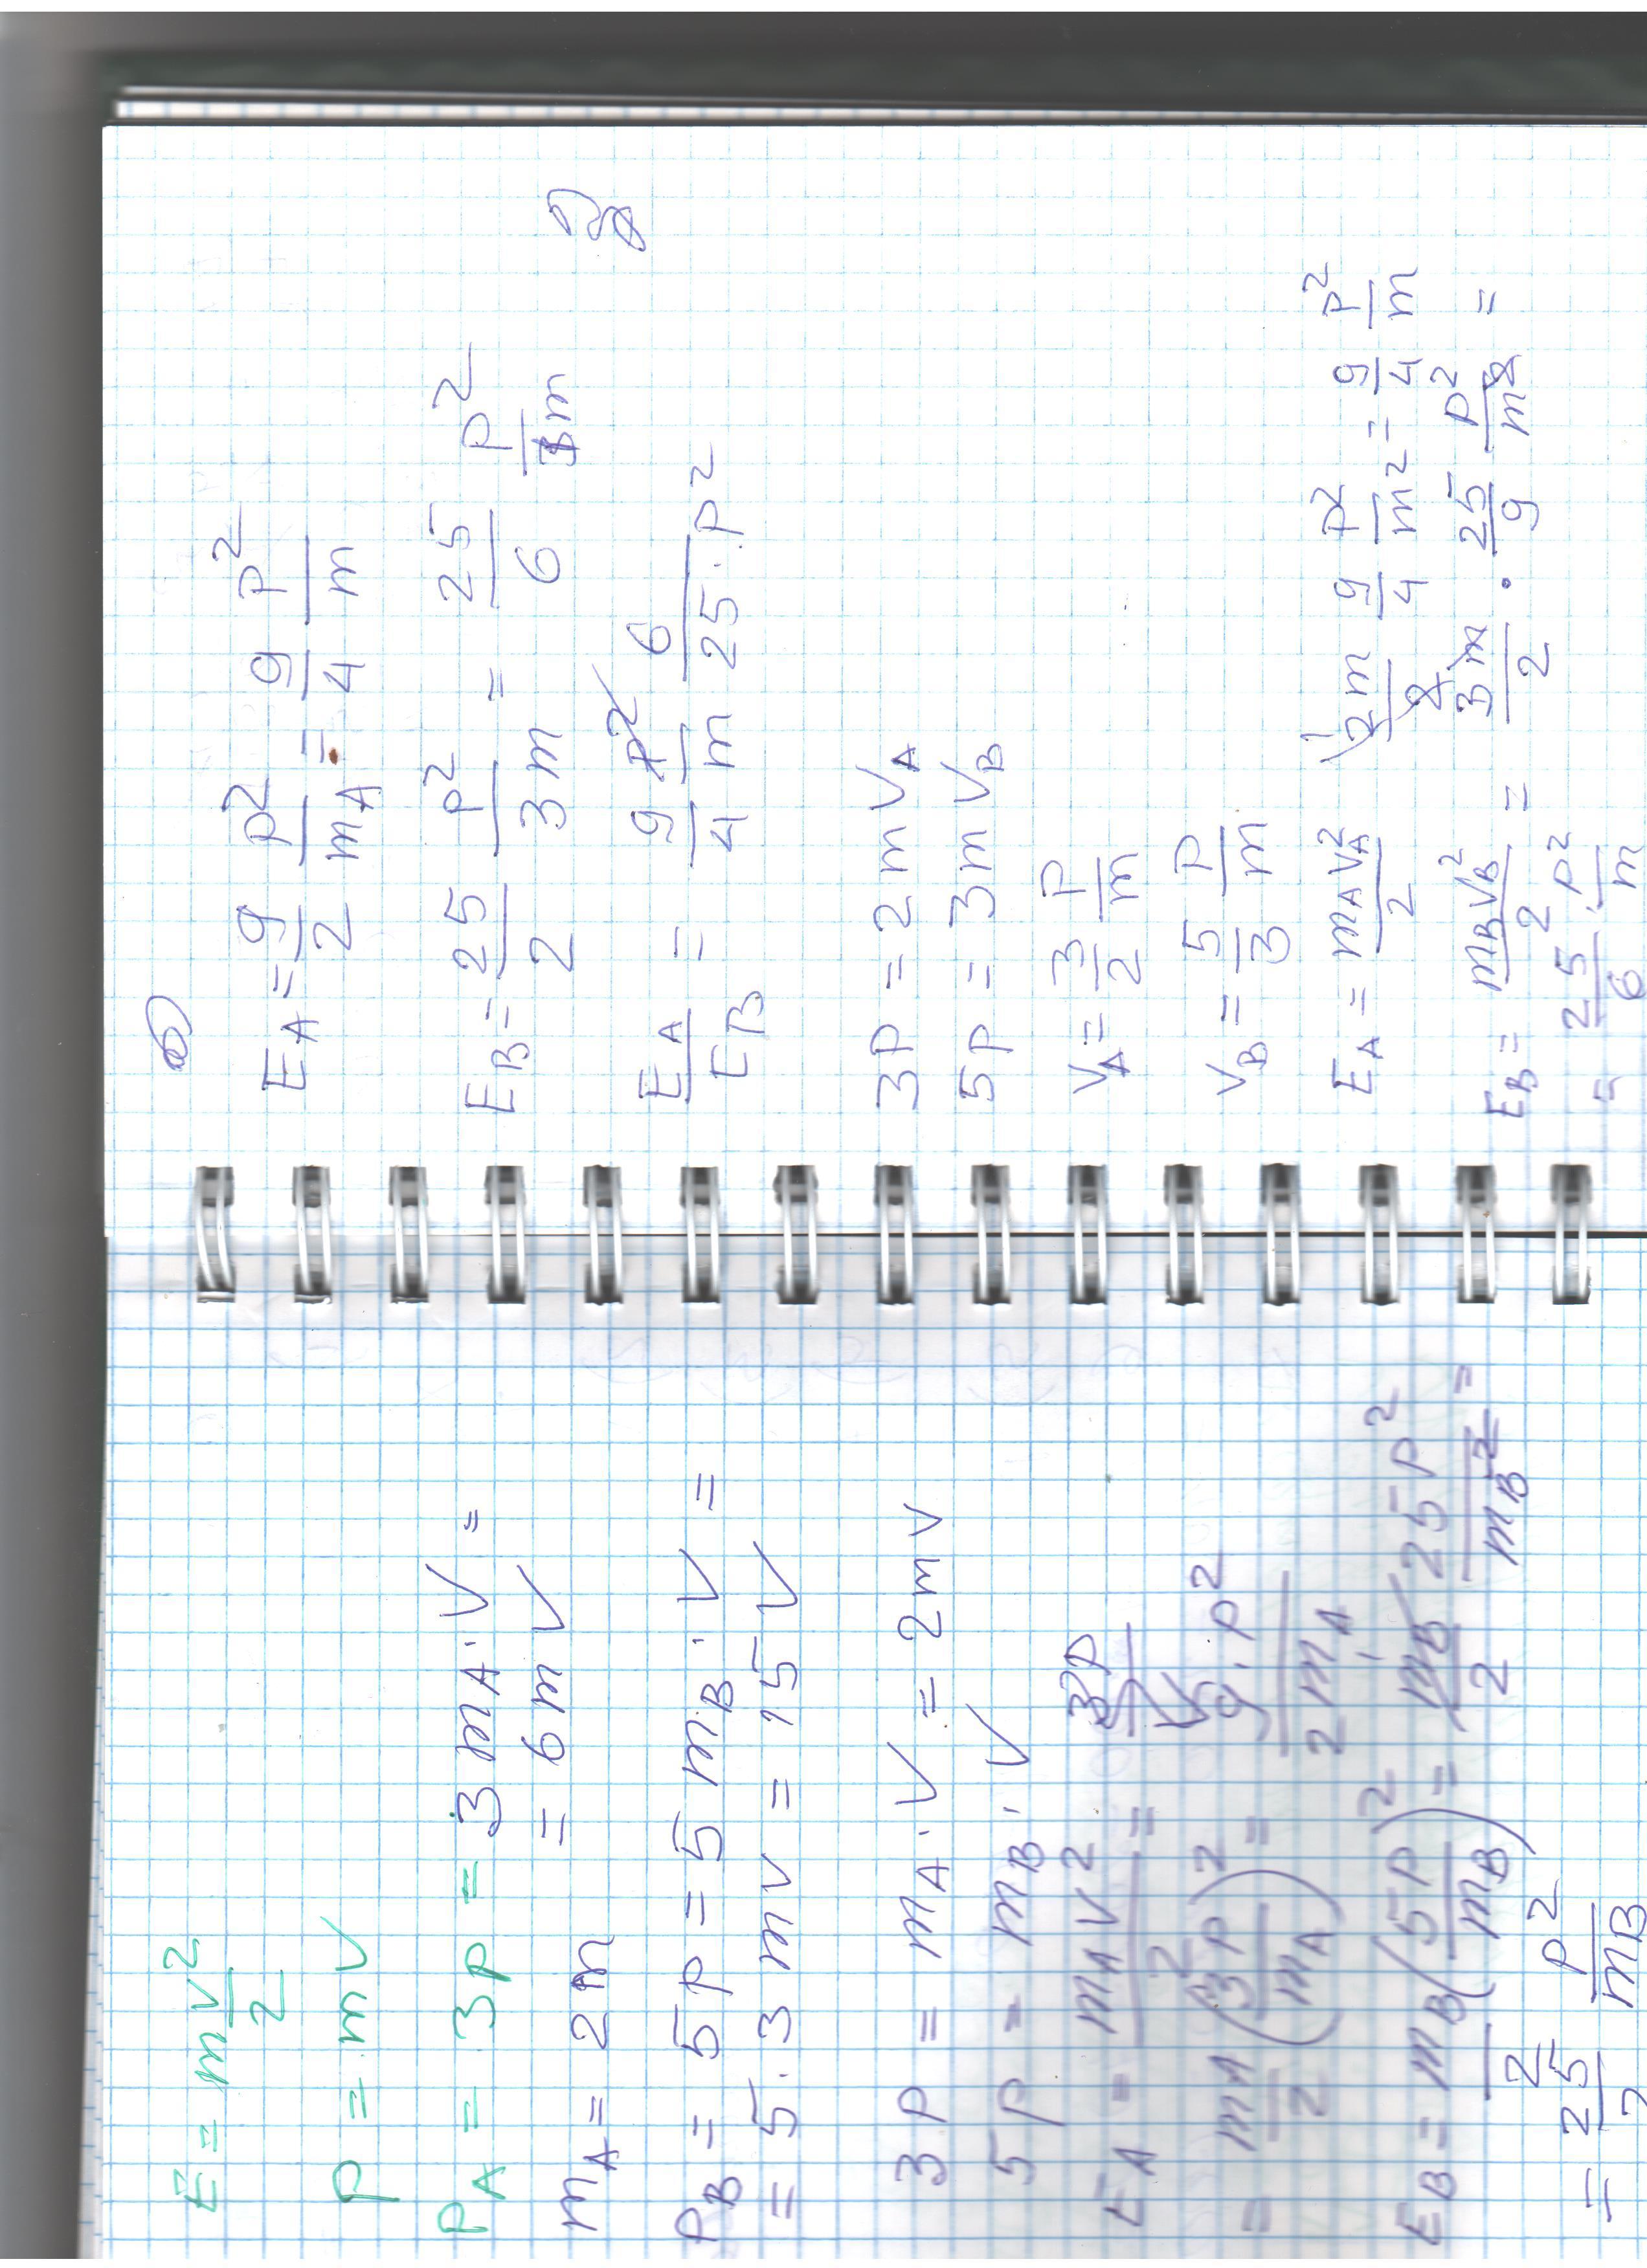 E = m v²/2
P = mV
P_A = 3P = 3m_A·V =
m_A = 2m = 6mV
P_B = 5P = 5m_B·V =
= 5·3mV = 15V
3P = m_A·V = 2mV
5P = m_B·V
E_A = m_A V²/2 = 3P/V
= m_A/2 (3P/m_A)² = 9·P²/2m_A
E_B = m_B/2 (5P/m_B)² = m_B/2 25P²/m_B² =
= 25/2 P²/m_B
E_A = 9/2 P²/m_A = 9/4 P²/m
E_B = 25/2 P²/3m = 25/6 P²/m
E_A/E_B = 9/4 P²/m 6/25·P²
3P = 2mV_A
5P = 3mV_B
V_A = 3/2 P/m
V_B = 5/3 P/m
E_A = m_A V_A²/2 2m/2 9/4 P²/m² = 9/4 P²/m
E_B = m_B V_B²/2 = 3m/2 · 25/9 P²/m² =
= 25/6·P²/m